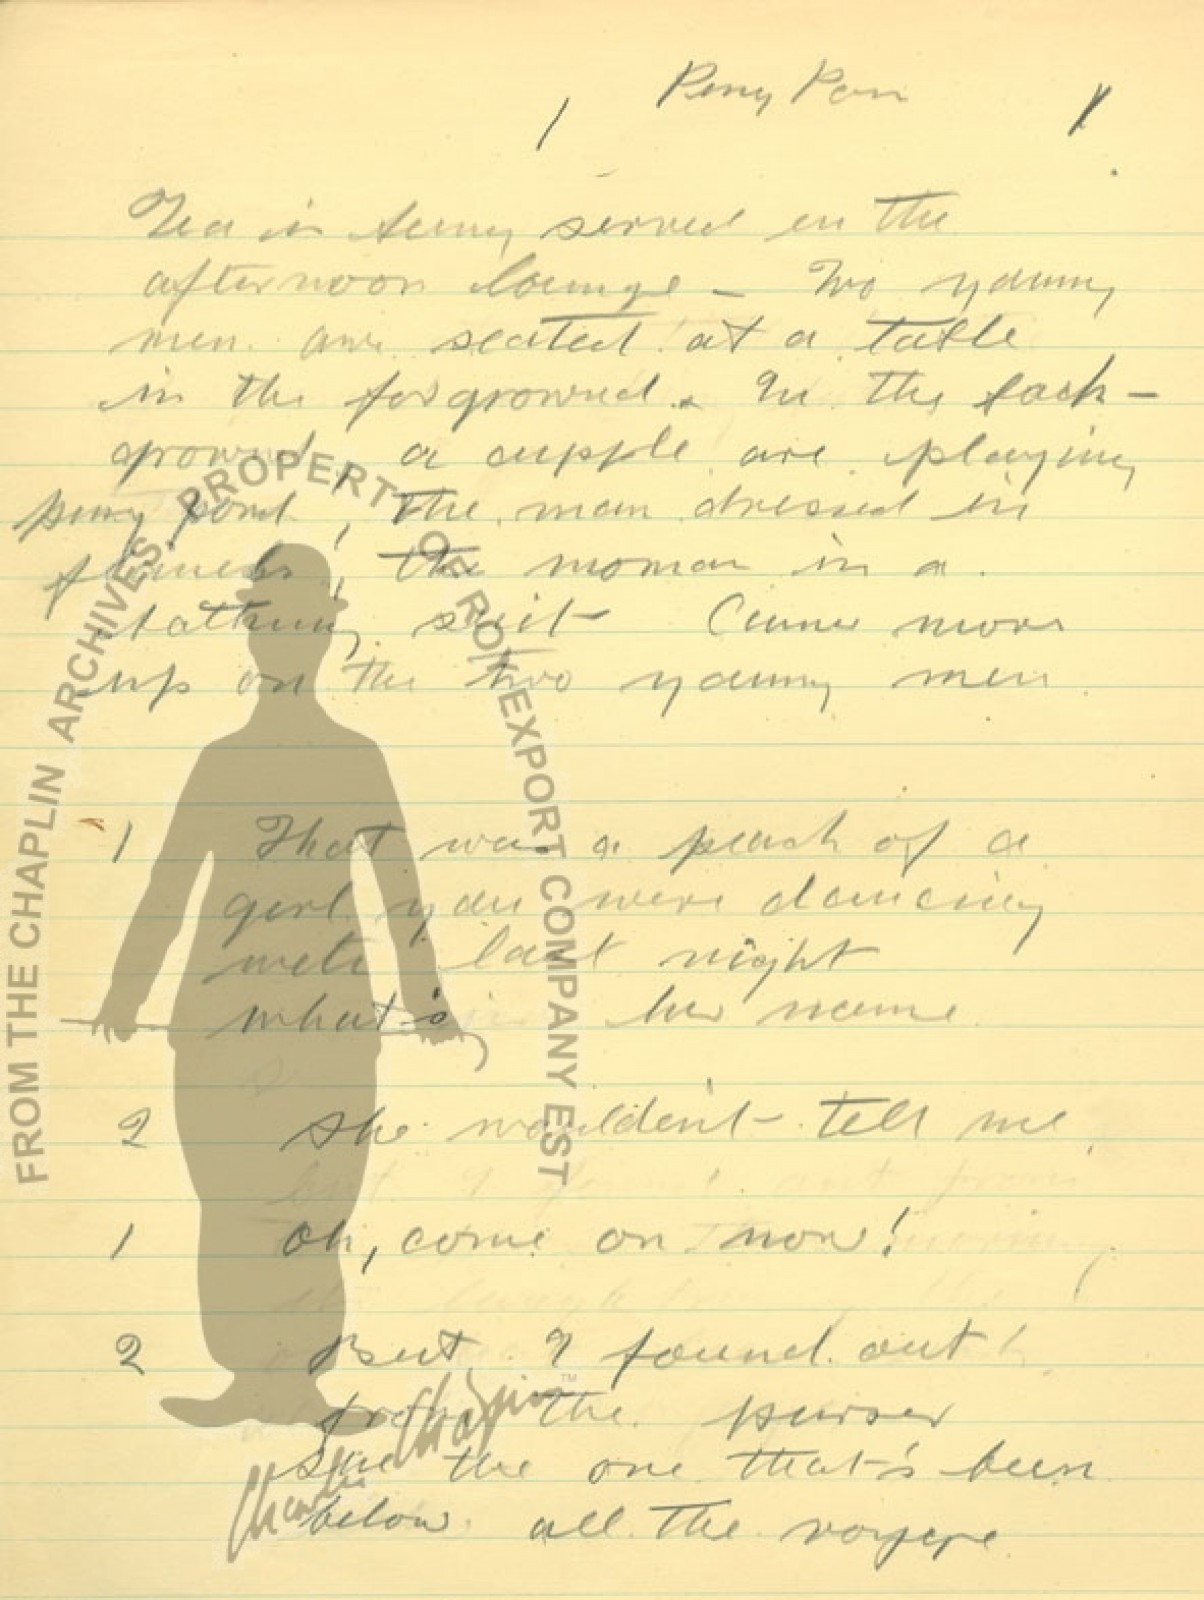 1 Ping Pon 1
Tea is being served in the
afternoon lounge – Two young
men are seated at a table
in the forgrownd. In the back-
grownd, a cupple are playing
ping pond, the man dressed in
the woman in a
bathing suit move
up on the two young men
1 That was a peach of a
girl you were dancing
with last night
what's her name
2 She wouldent tell me
1 Oh, come on now!
2 But, I found out
from the purser
She the one that's been
below all the voyege
FROM THE CHAPLIN ARCHIVES, PROPERTY OF ROY EXPORT COMPANY EST
Charlie Chaplin ™